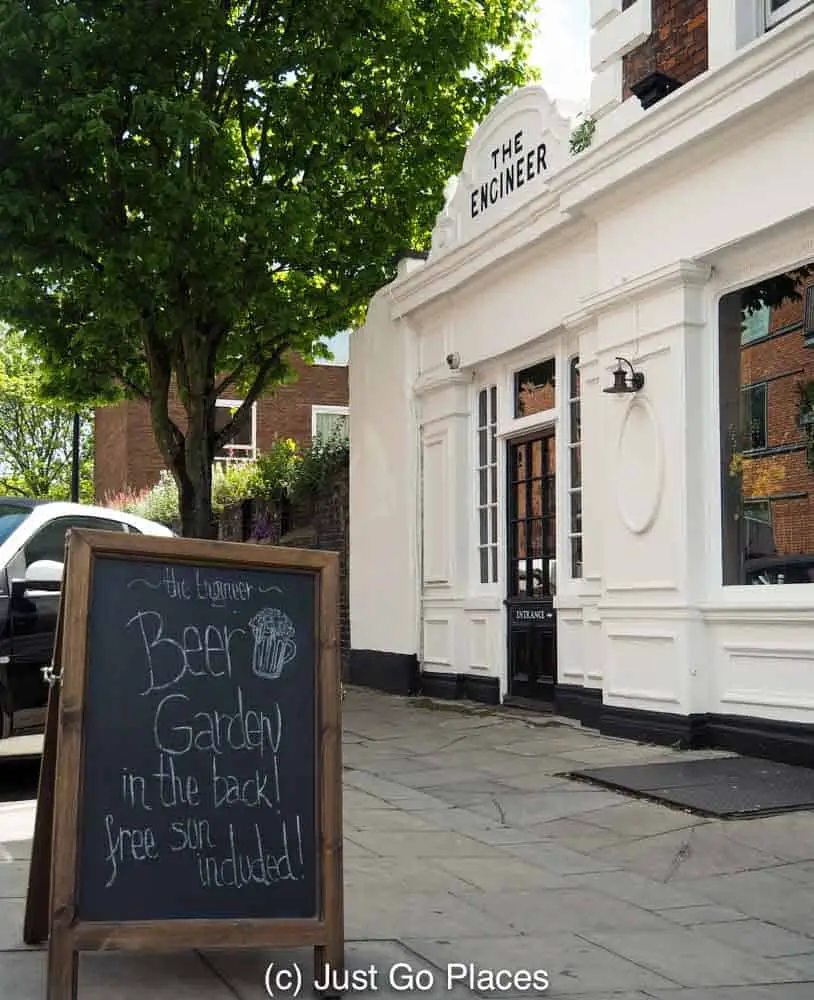 THE
ENGINEER
ENTRANCE
the Engineer
Beer
Garden
in the back!
free sun
included!
(c) Just Go Places